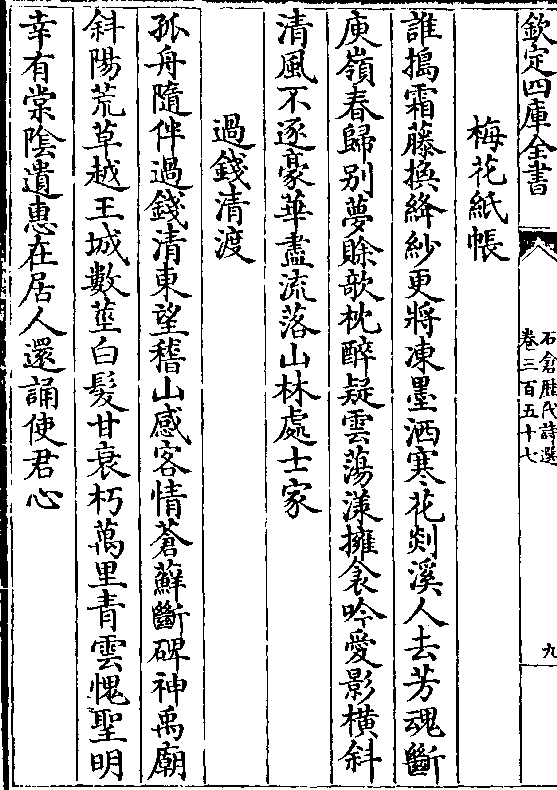 欽定四庫全書
石倉歷代詩選
卷三百五十七
九
梅花紙帳
誰搗霜藤換絳紗更將凍墨洒寒花剡溪人去芳魂斷
庾嶺春歸别夢賒欹枕醉疑雲蕩漾擁衾吟愛影横斜
清風不逐豪華盡流落山林處士家
過錢清渡
孤舟隨伴過錢清東望稽山感客情蒼蘚斷碑神禹廟
斜陽荒草越王城數莖白髮甘衰朽萬里青雲愧聖明
幸有棠陰遺惠在居人還誦使君心